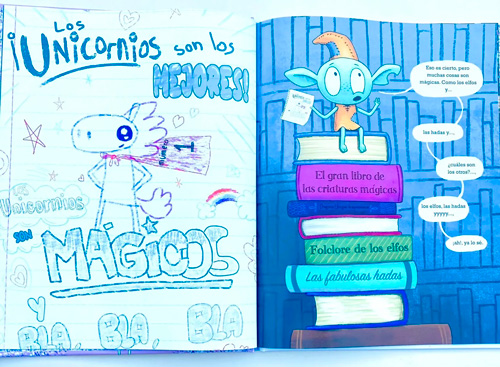 Los
¡Unicornios son los
MEJORES!
NÚMERO
1
Los
Unicornios
son
MÁGICOS
y
BLA, BLA, BLA
Eso es cierto, pero
muchas cosas son
mágicas. Como los elfos
y...
las hadas y....
¿cuáles son
los otros?....
los elfos, las hadas
yyyyy....
¡ah!, ya lo sé.
El gran libro de
las criaturas mágicas
Folclore de los elfos
Las fabulosas hadas